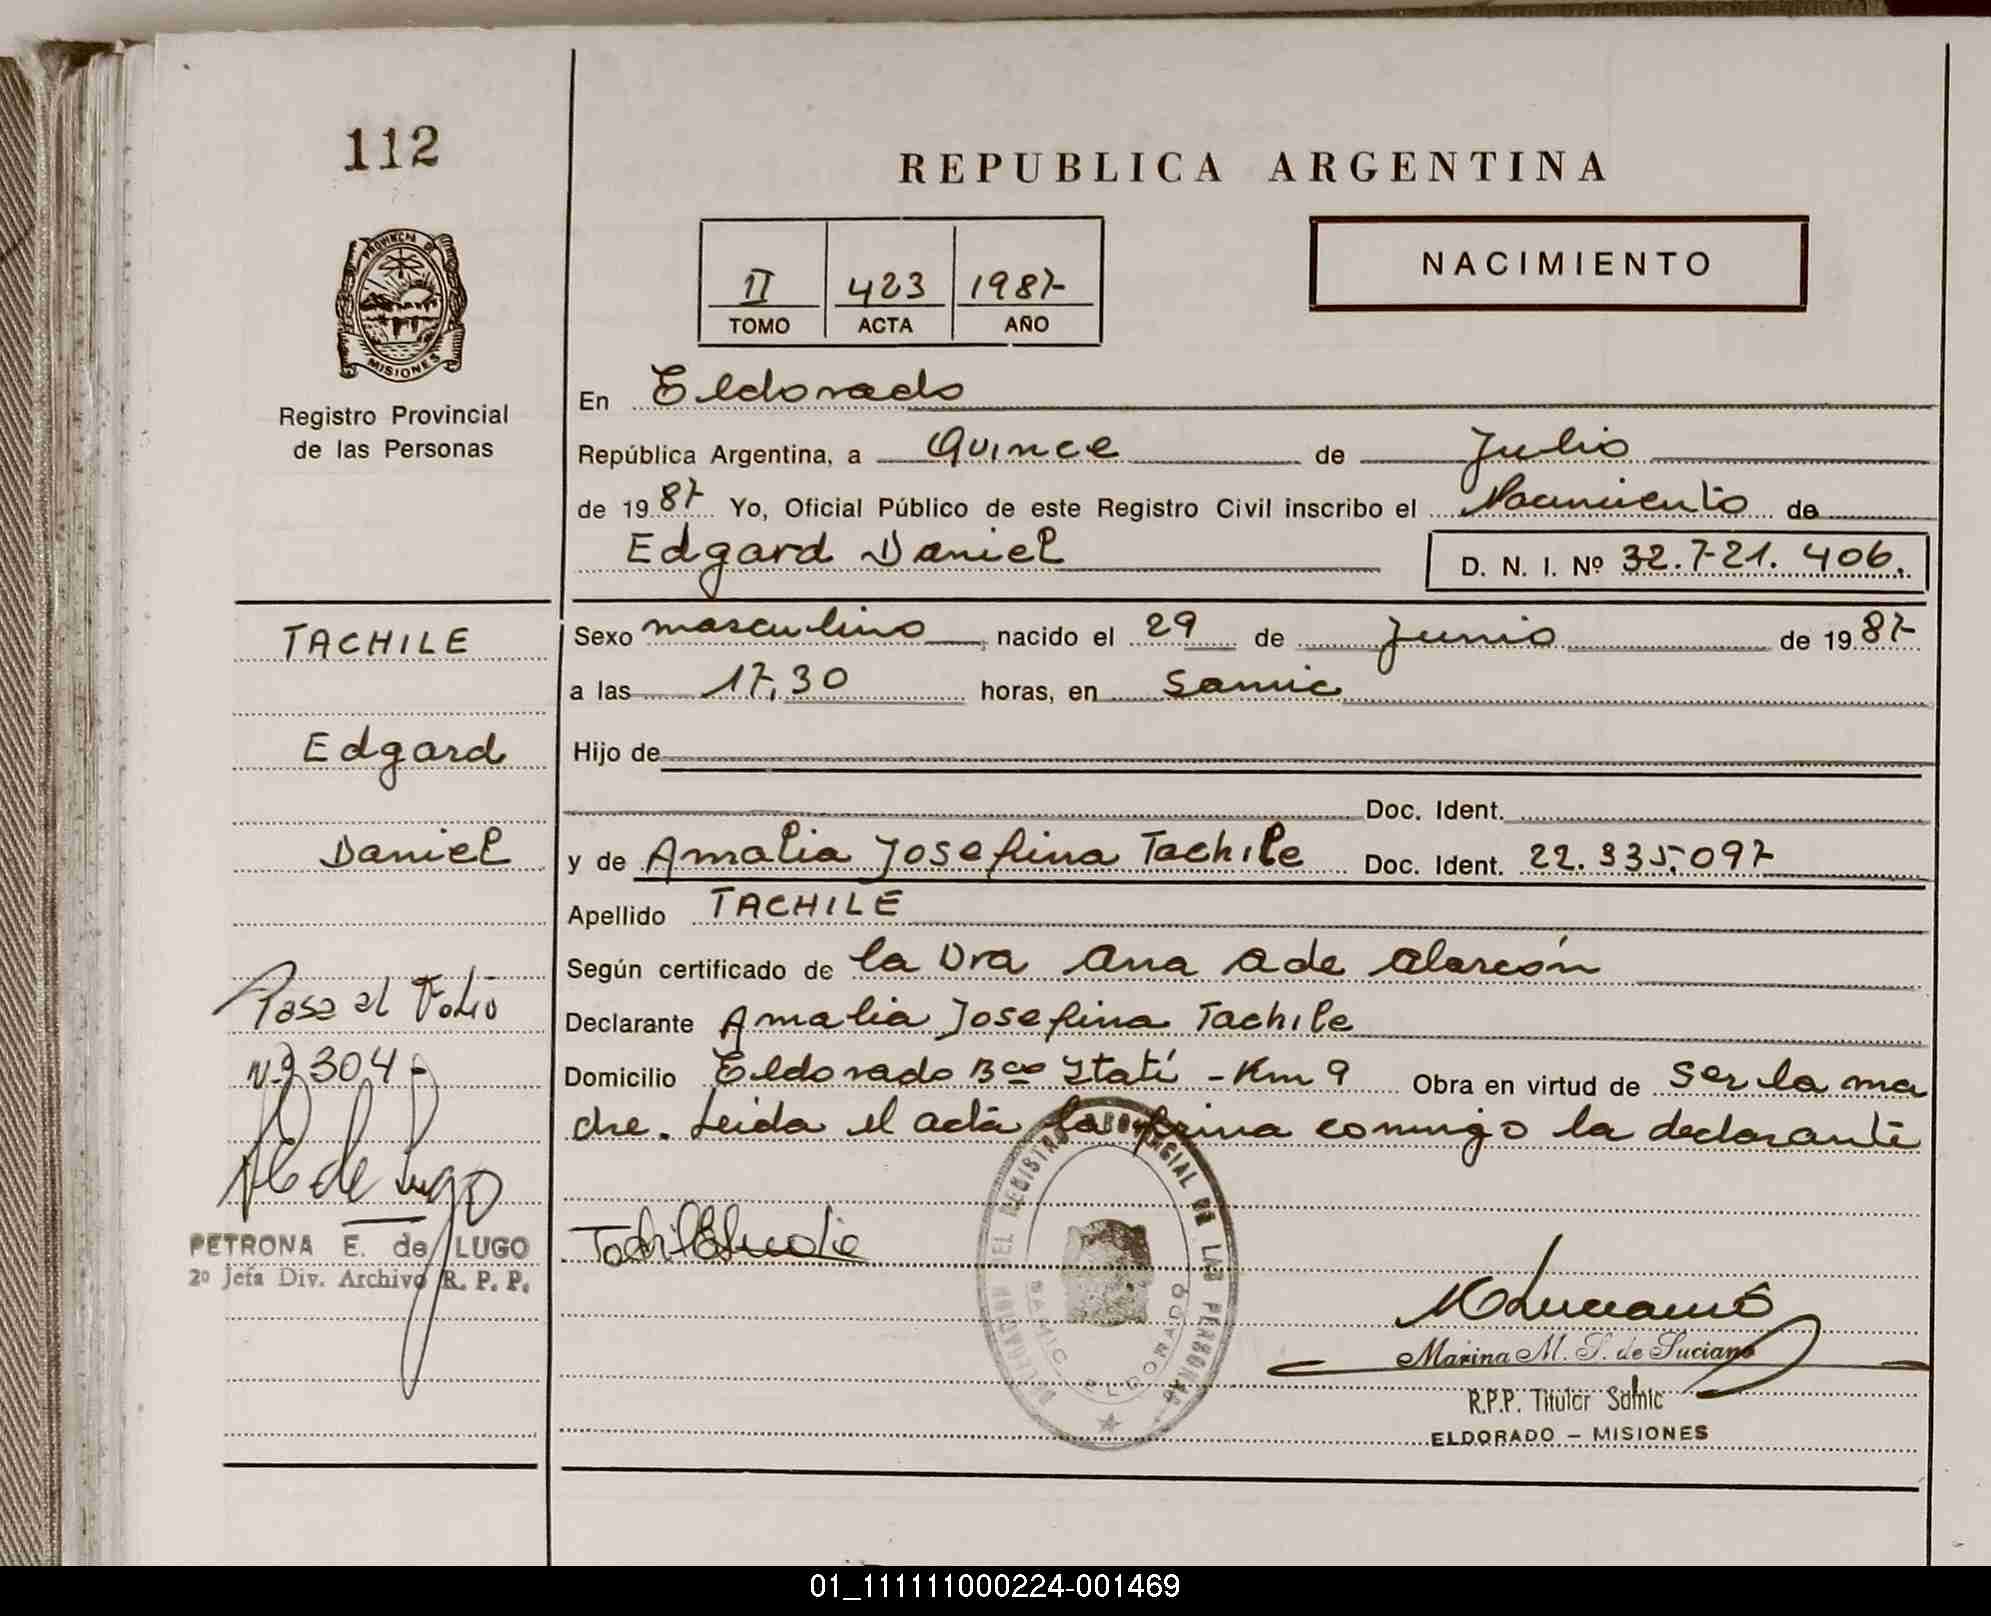 112
PROVINCIA DE
MISIONES
Registro Provincial
de las Personas
TACHILE
Edgard
Daniel
Pasa al Folio
Nº 304-
PETRONA E. de LUGO
2º Jefa Div. Archivo R. P. P.
REPUBLICA ARGENTINA
II 423 1987
TOMO ACTA AÑO
NACIMIENTO
En Eldorado
República Argentina, a Quince de Julio
de 1987 Yo, Oficial Público de este Registro Civil inscribo el Nacimiento de
Edgard Daniel D. N. I. Nº 32.721.406.
Sexo masculino, nacido el 29 de Junio de 1987
a las 17,30 horas, en Samic
Hijo de
Doc. Ident.
y de Amalia Josefina Tachile Doc. Ident. 22.335.097
Apellido TACHILE
Según certificado de la Dra Ana A de Alarcón
Declarante Amalia Josefina Tachile
Domicilio Eldorado Bco Itatí - Km 9 Obra en virtud de ser la ma
dre. Leida el acta la firma conmigo la declarante
DELEGACION EL REGISTRO PROVINCIAL DE LAS PERSONAS
SAMIC ELDORADO
Marina M. S. de Luciano
R.P.P. Titular Samic
ELDORADO - MISIONES
01_111111000224-001469